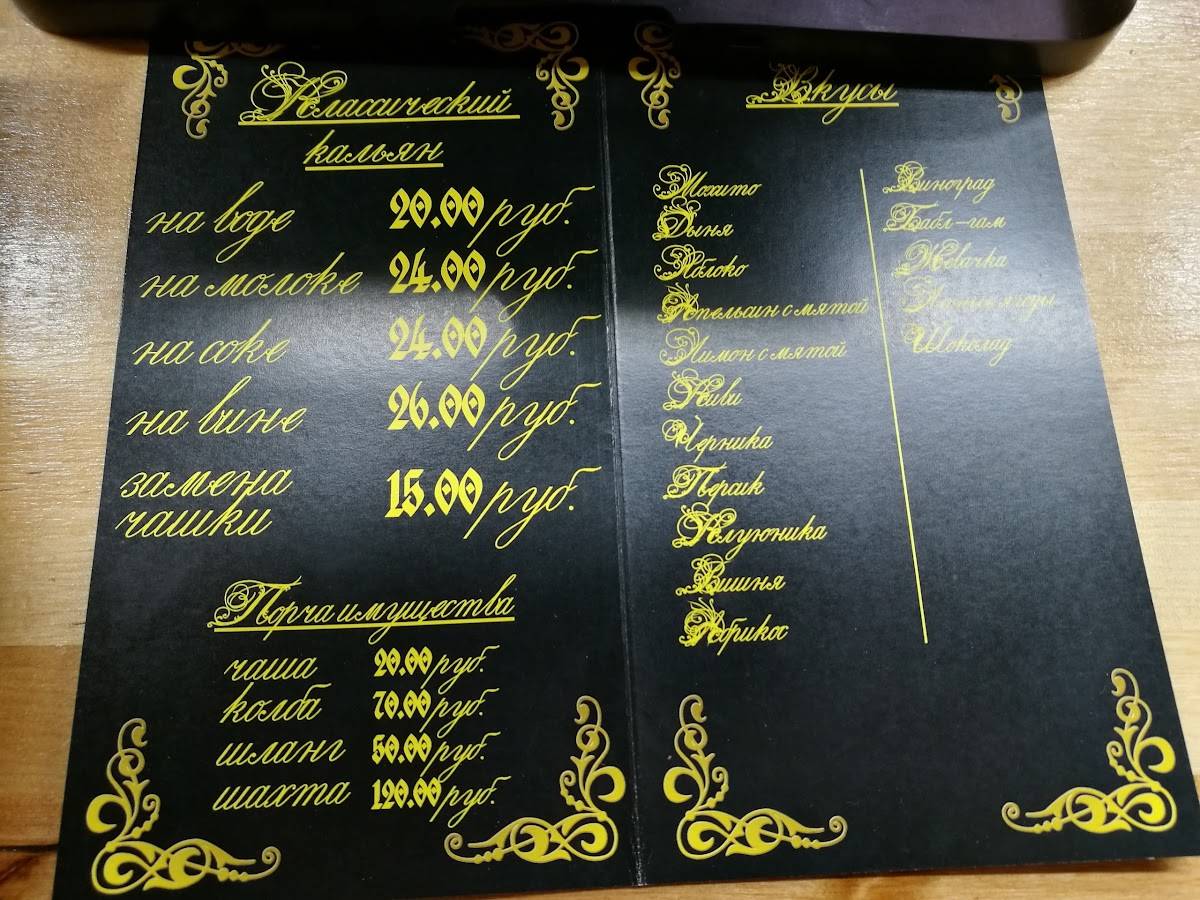 Классический
кальян
на воде 20.00 руб.
на молоке 24.00 руб.
на соке 24.00 руб.
на вине 26.00 руб.
замена
чашки 15.00 руб.
Порча имущества
чаша 20.00 руб.
колба 70.00 руб.
шланг 50.00 руб.
шахта 120.00 руб.
Вкусы
Мохито
Дыня
Яблоко
Апельсин с мятой
Лимон с мятой
Киви
Черника
Персик
Клубника
Вишня
Абрикос
Виноград
Бабл-гам
Жевачка
ягоды
Шоколад